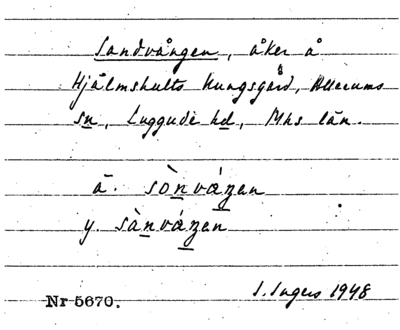 Sandvången, åker å
Hjälmshults Kungsgård, Allerums
sn, Luggude hd, Mhs län.
ä. sònváŋen
y. sànváŋen
Nr 5670.
I. Ingers 1948